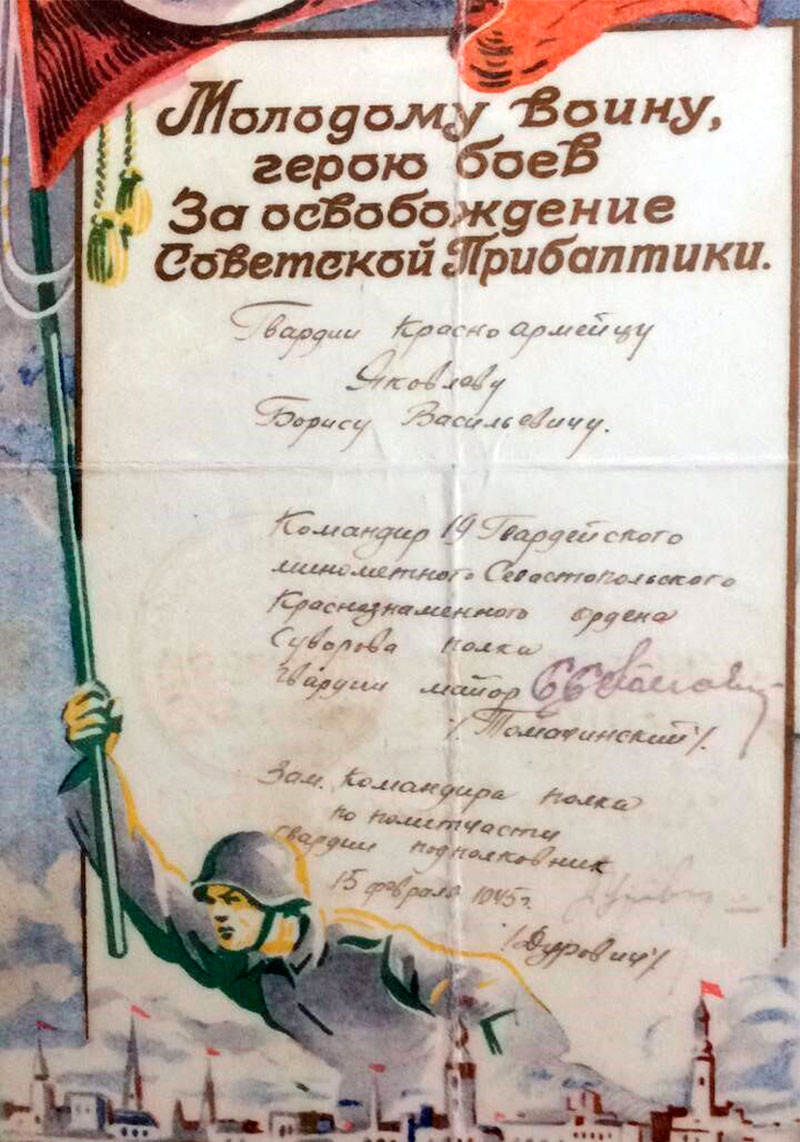 Молодому воину,
герою боев
За освобождение
Советской Прибалтики.
Гвардии Красноармейцу
Яковлеву
Борису Васильевичу.
Командир 19 Гвардейского
минометного Севастопольского
Краснознаменного ордена
Суворова полка
гвардии майор
/Томачинский/.
Зам. Командира полка
по политчасти
гвардии подполковник
15 февраля 1945 г.
/Дурович/.